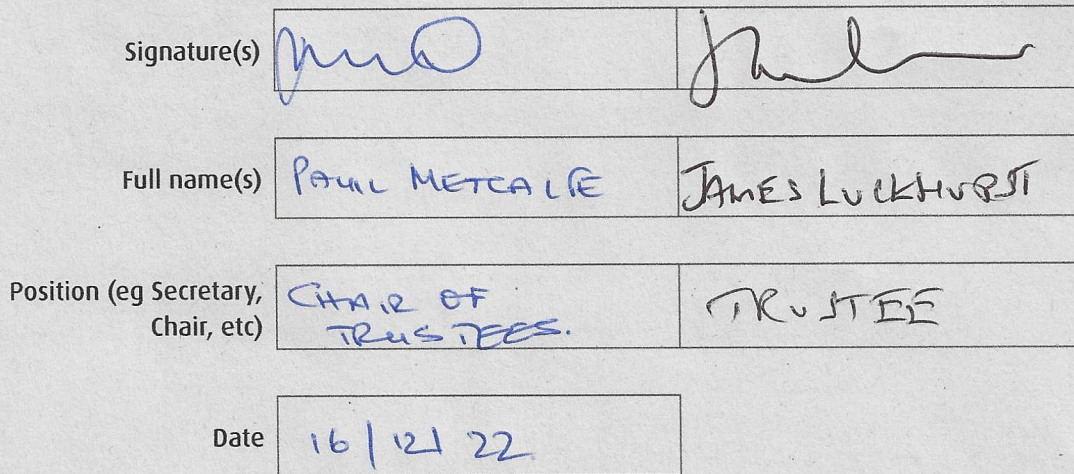 Signature(s)
Full name(s) PAUL METCALFE JAMES LUCKHURST
Position (eg Secretary, CHAIR OF TRUSTEE
Chair, etc) TRUSTEES.
Date 16/12/22